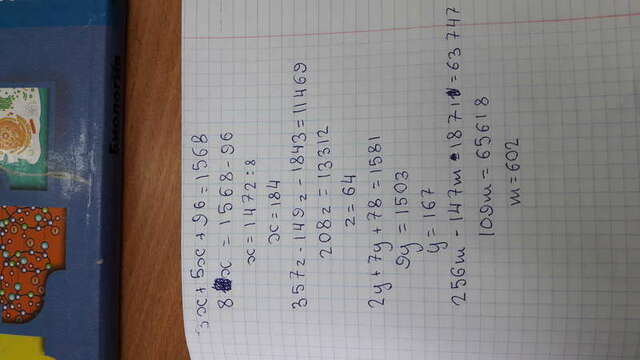 Биология
3x + 5x + 96 = 1568
8x = 1568 - 96
x = 1472 : 8
x = 184
357z - 149z - 1843 = 11469
208z = 13312
z = 64
2y + 7y + 78 = 1581
9y = 1503
y = 167
256m - 147m - 1871 = 63747
109m = 65618
m = 602